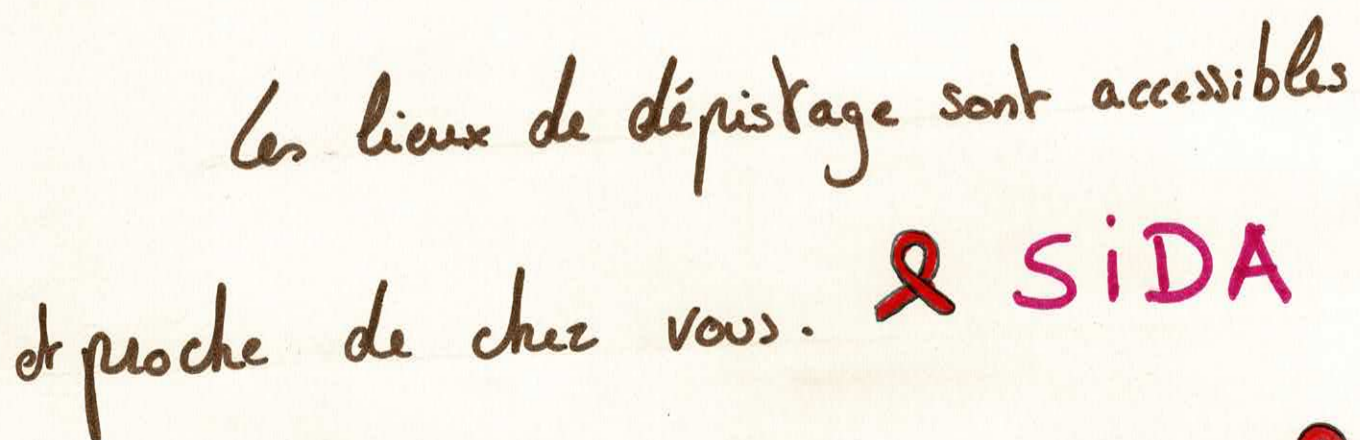 Les lieux de dépistage sont accessibles
et proche de chez vous. SiDA